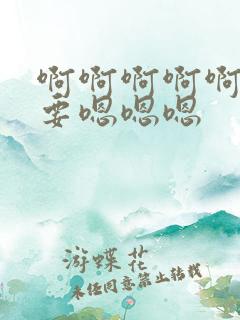 啊啊啊啊啊
要嗯嗯嗯
游蝶花
未经同意禁止转载